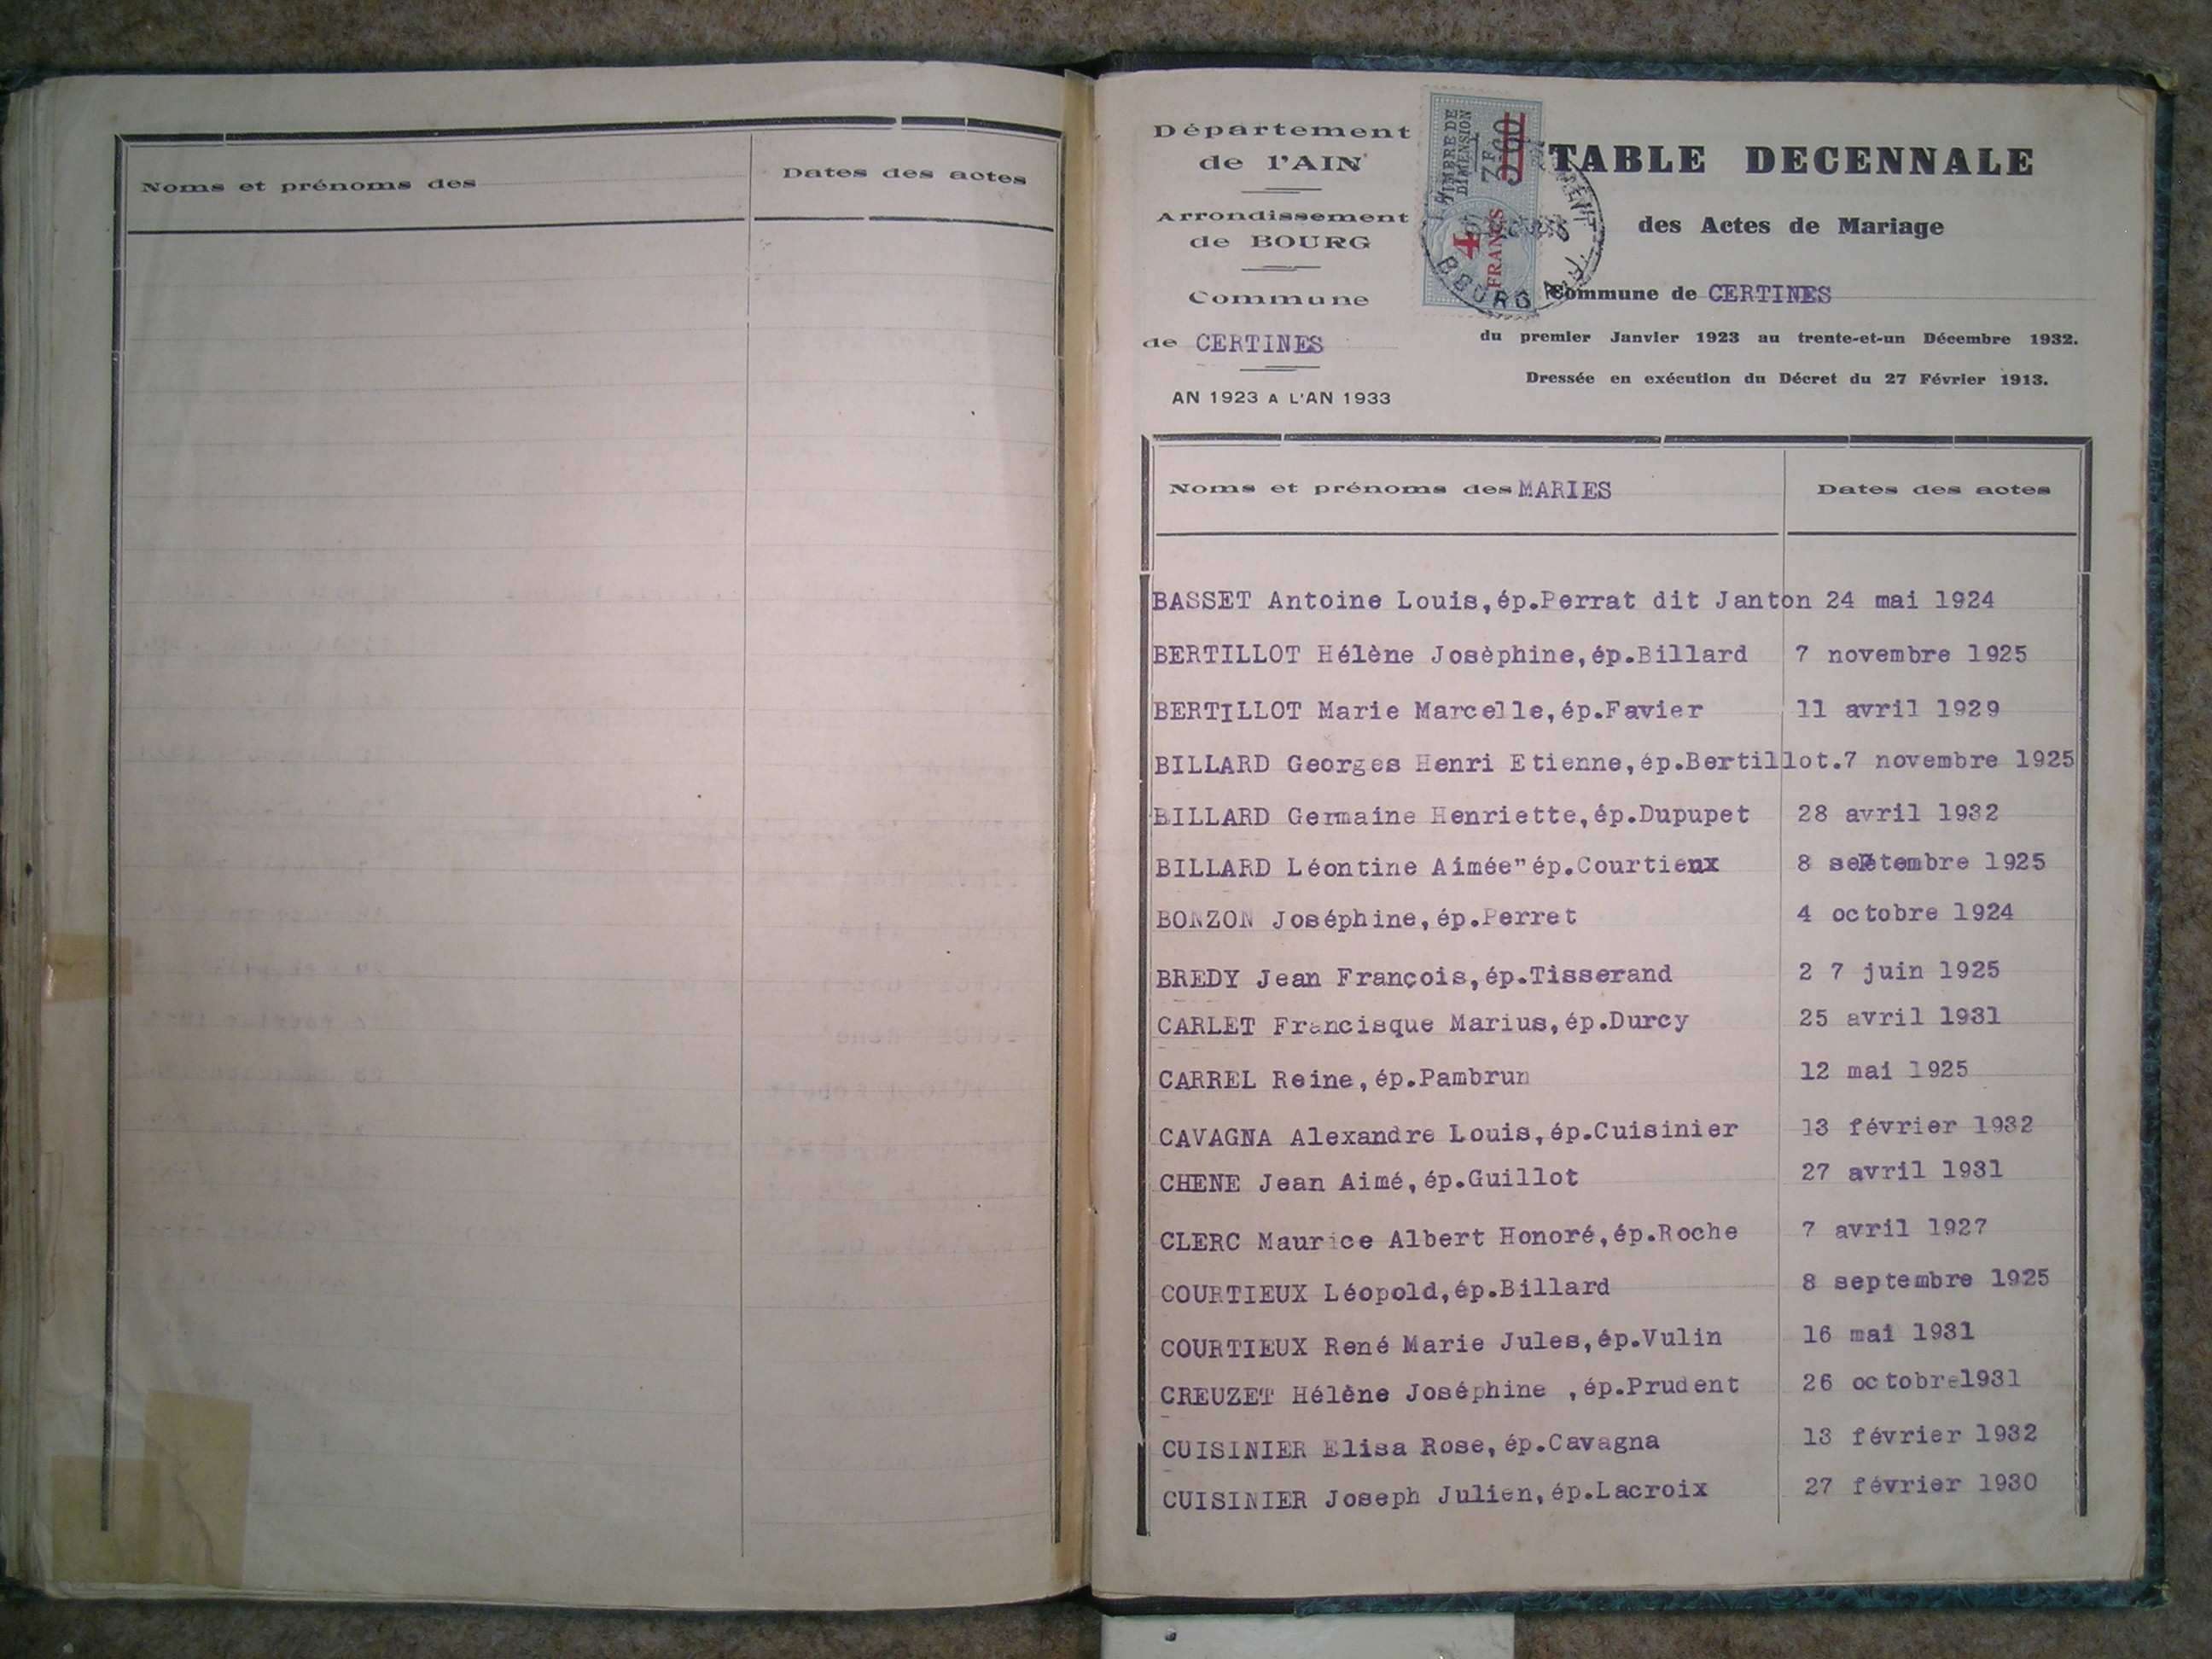 Noms et prénoms des
Dates des actes
Département
de l'AIN
Arrondissement
de BOURG
Commune
de CERTINES
AN 1923 A L'AN 1933
TIMBRE DE
DIMENSION
4
FRANCS
BOURG
TABLE DECENNALE
des Actes de Mariage
Commune de CERTINES
du premier Janvier 1923 au trente-et-un Décembre 1932.
Dressée en exécution du Décret du 27 Février 1913.
Noms et prénoms des MARIES
Dates des actes
BASSET Antoine Louis,ép.Perrat dit Janton 24 mai 1924
BERTILLOT Hélène Josèphine,ép.Billard 7 novembre 1925
BERTILLOT Marie Marcelle,ép.Favier 11 avril 1929
BILLARD Georges Henri Etienne,ép.Bertillot.7 novembre 1925
BILLARD Germaine Henriette,ép.Dupupet 28 avril 1932
BILLARD Léontine Aimée"ép.Courtieux 8 septembre 1925
BONZON Joséphine,ép.Perret 4 octobre 1924
BREDY Jean François,ép.Tisserand 2 7 juin 1925
CARLET Francisque Marius,ép.Durcy 25 avril 1931
CARREL Reine,ép.Pambrun 12 mai 1925
CAVAGNA Alexandre Louis,ép.Cuisinier 13 février 1932
CHENE Jean Aimé,ép.Guillot 27 avril 1931
CLERC Maurice Albert Honoré,ép.Roche 7 avril 1927
COURTIEUX Léopold,ép.Billard 8 septembre 1925
COURTIEUX René Marie Jules,ép.Vulin 16 mai 1931
CREUZET Hélène Joséphine ,ép.Prudent 26 octobre1931
CUISINIER Elisa Rose,ép.Cavagna 13 février 1932
CUISINIER Joseph Julien,ép.Lacroix 27 février 1930